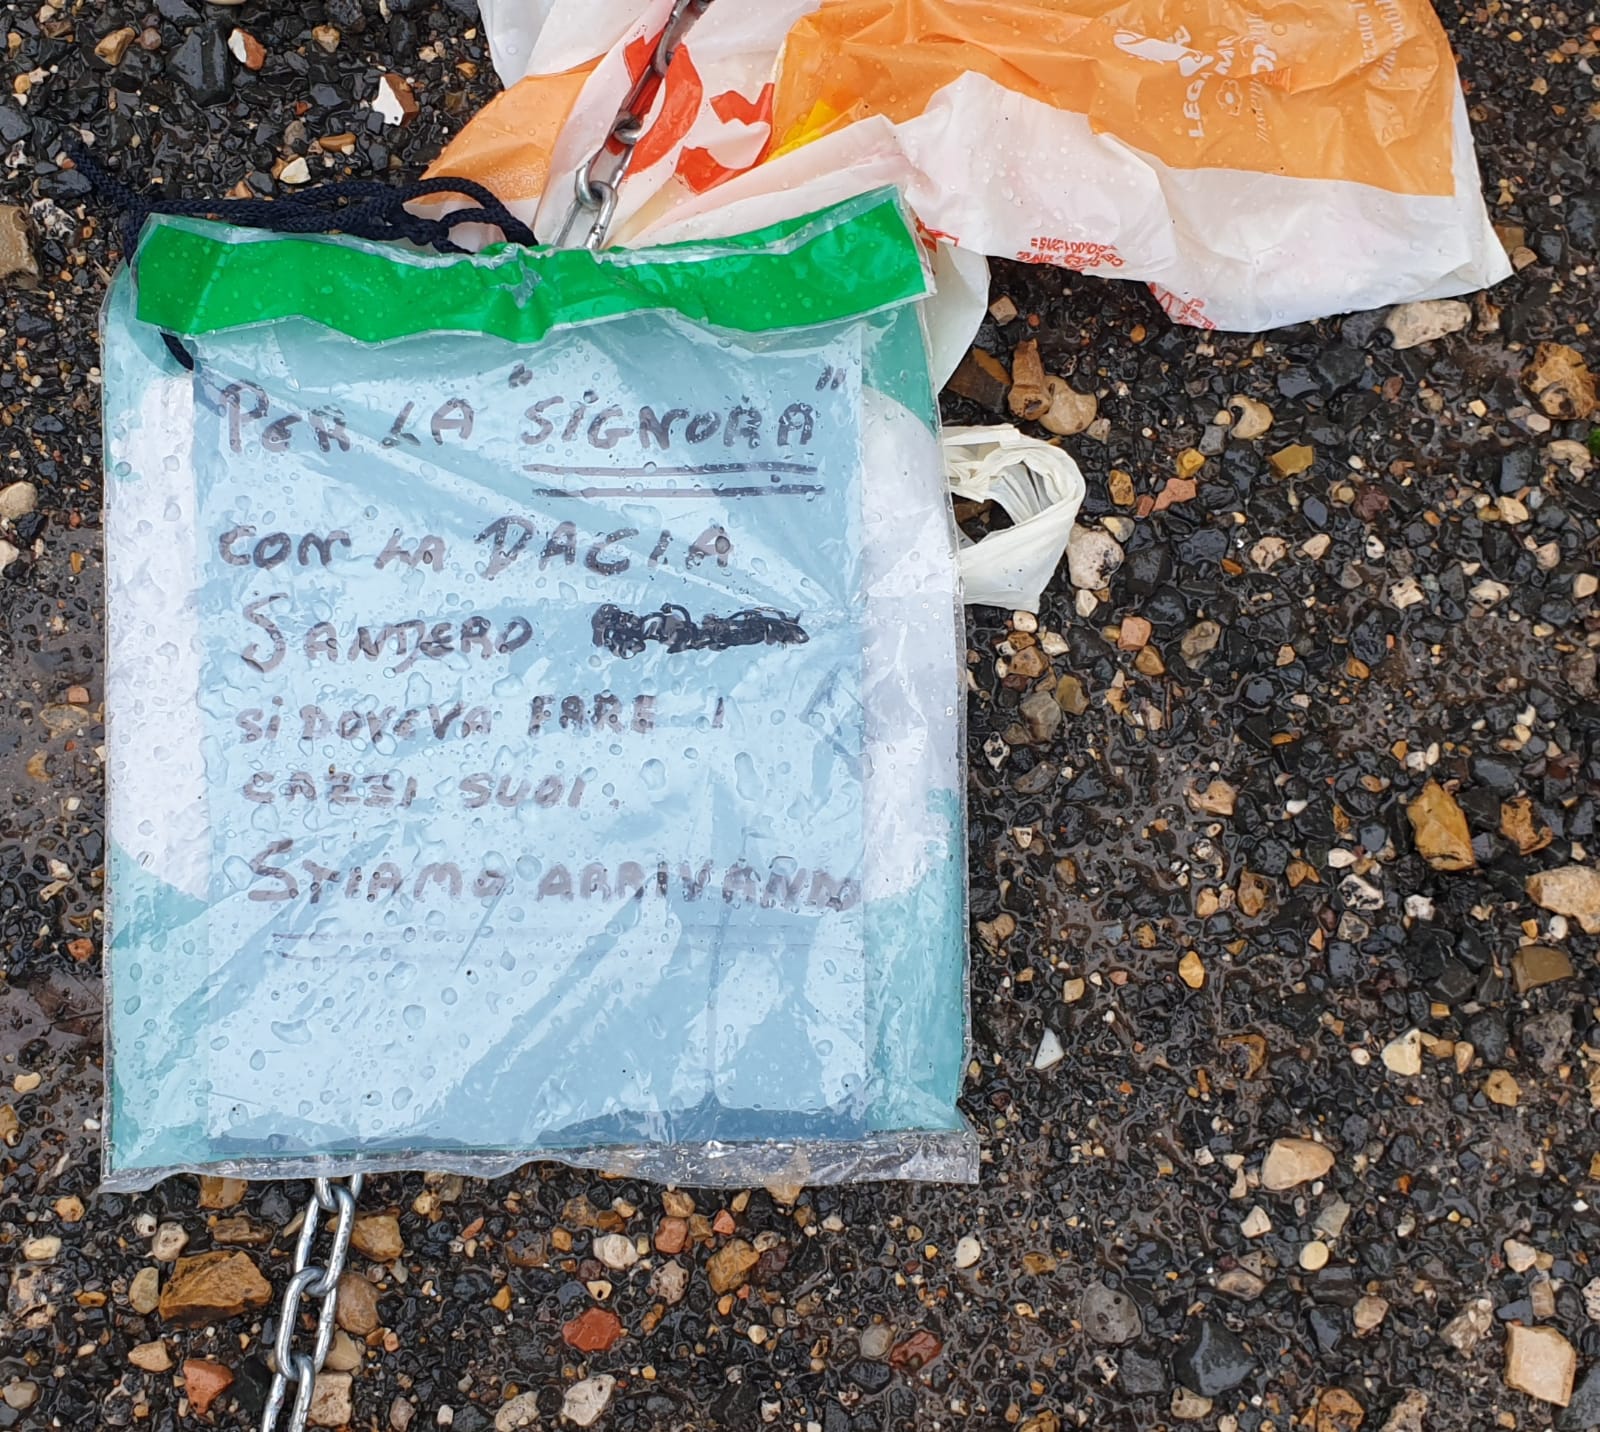 PER LA "SiGNORA"
CON LA DACIA
SANDERO
Si DOVEVA FARE I
CAZZI SUOI.
STIAMO ARRIVANDO